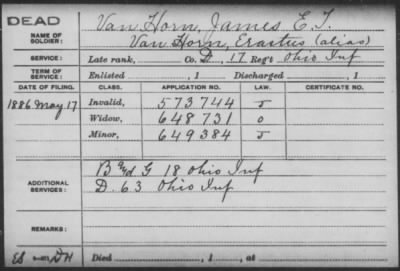 DEAD
Van Horn, James E. T.
NAME OF SOLDIER: Van Horn, Erastus (alias)
SERVICE: Late rank, Co. D, 17 Reg't Ohio Inf
TERM OF SERVICE: Enlisted , 1 Discharged , 1
DATE OF FILING. CLASS. APPLICATION NO. LAW. CERTIFICATE NO.
1886 May 17 Invalid, 573744 J
Widow, 648731 O
Minor, 649384 J
B and G 18 Ohio Inf
ADDITIONAL SERVICES: D. 63 Ohio Inf
REMARKS:
Died , 1 , at